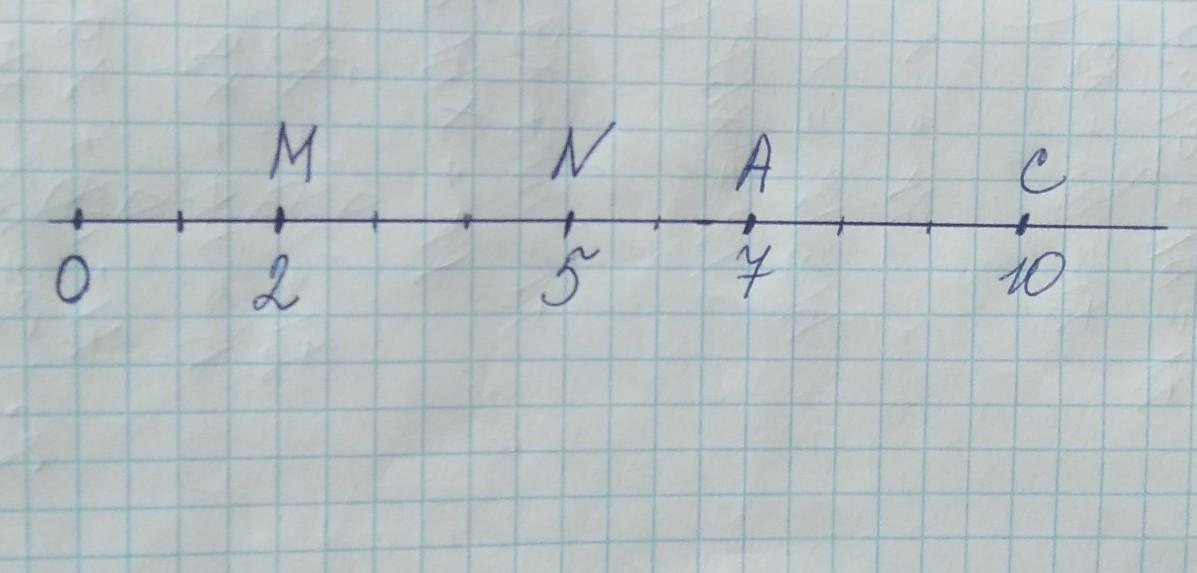 M N A C
0 2 5 7 10